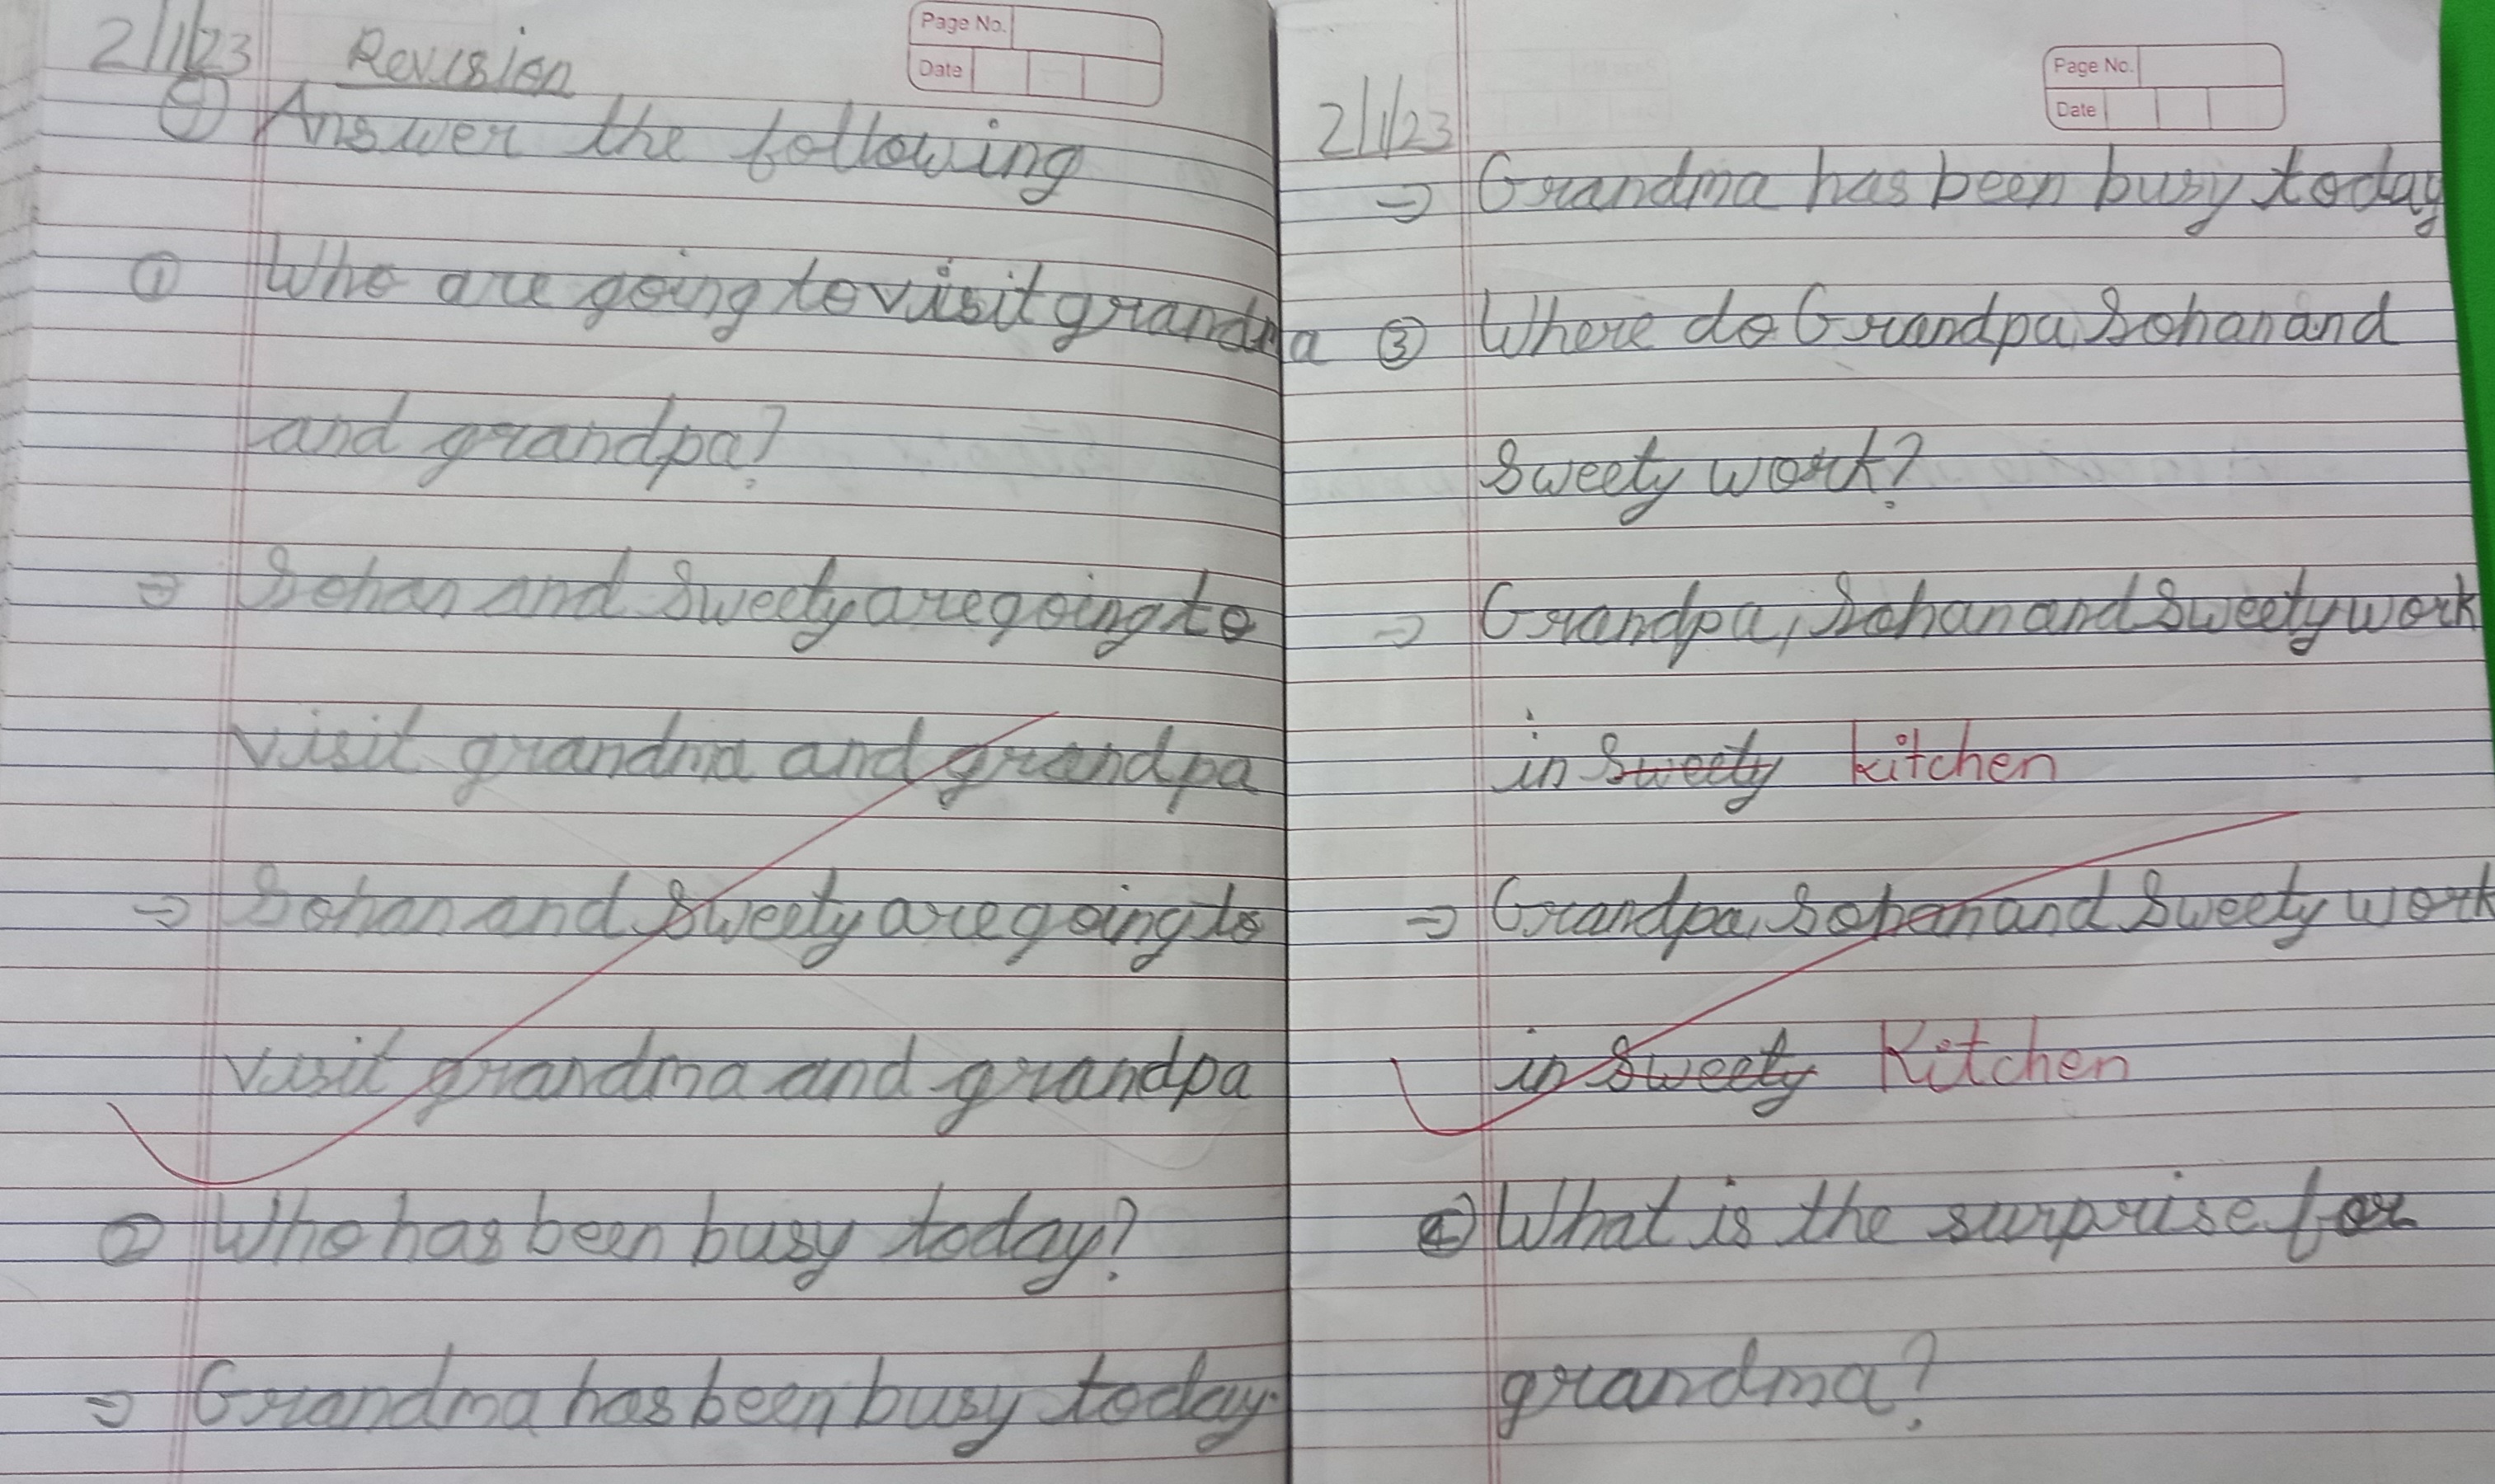 2/1/23 Revision
Page No.
Date
Answer the following
① Who are going to visit grandma
and grandpa?
⇒ Sohan and Sweety are going to
visit grandma and grandpa
⇒ Sohan and Sweety are going to
visit grandma and grandpa
② Who has been busy today?
⇒ Grandma has been busy today.
Page No.
Date
2/1/23
⇒ Grandma has been busy today
③ Where do Grandpa, Sohan and
Sweety work?
⇒ Grandpa, Sohan and Sweety work
in Sweety kitchen
⇒ Grandpa, Sohan and Sweety work
in Sweety Kitchen
④ What is the surprise for
grandma?